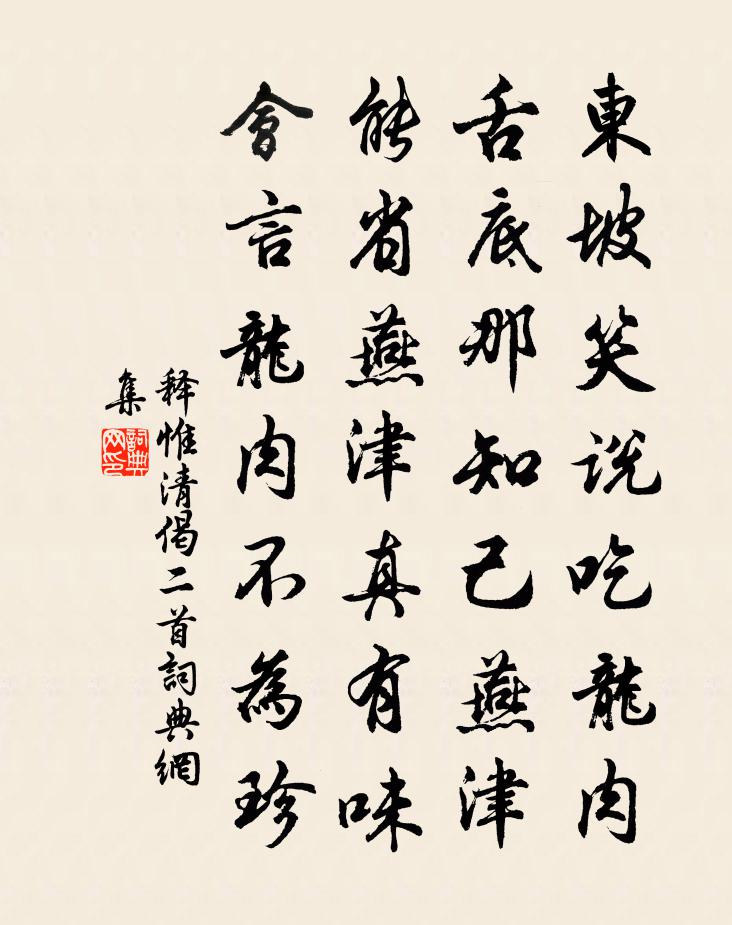 東坡笑说吃龍肉
舌底那知已燕津
能省燕津真有味
會言龍肉不為珍
释惟清偈二首詞典網
集
詞典
网印